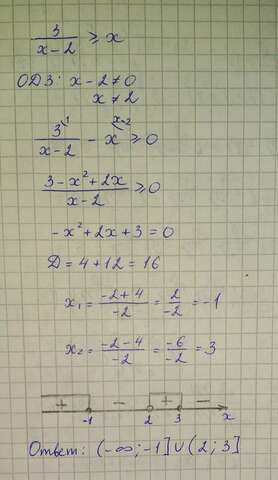 3/(x-2) ≥ x
ОДЗ: x-2≠0
x≠2
3^1/(x-2) - x^(x-2) ≥ 0
(3-x²+2x)/(x-2) ≥ 0
-x²+2x+3=0
D=4+12=16
x₁=(-2+4)/(-2)=2/(-2)=-1
x₂=(-2-4)/(-2)=(-6)/(-2)=3
+ - + -
-1 2 3 x
Ответ: (-∞;-1]∪(2;3]